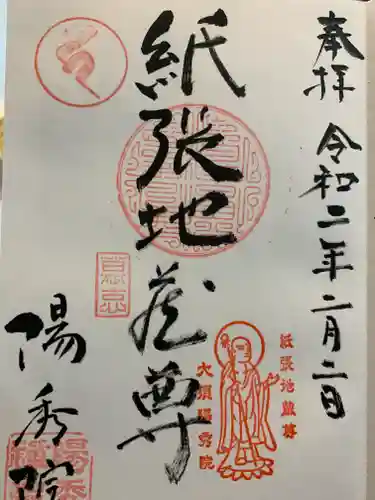 奉拝 令和二年二月二日
紙張地蔵尊
紙張地蔵尊
大須陽秀院
陽秀院